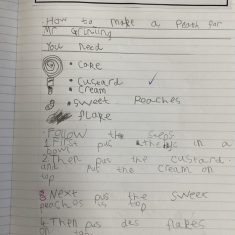 How to make a Peath for
Mr Grinling
You Need
• Cake
• Custard
• Cream
• sweet Peaches
• flake
Follow the steps
1 First pus the in a
bowl
2 Then pus the custard
and put the cream on
top
3 Next pus the sweet
peaches top
4 Then pus des flakes
on